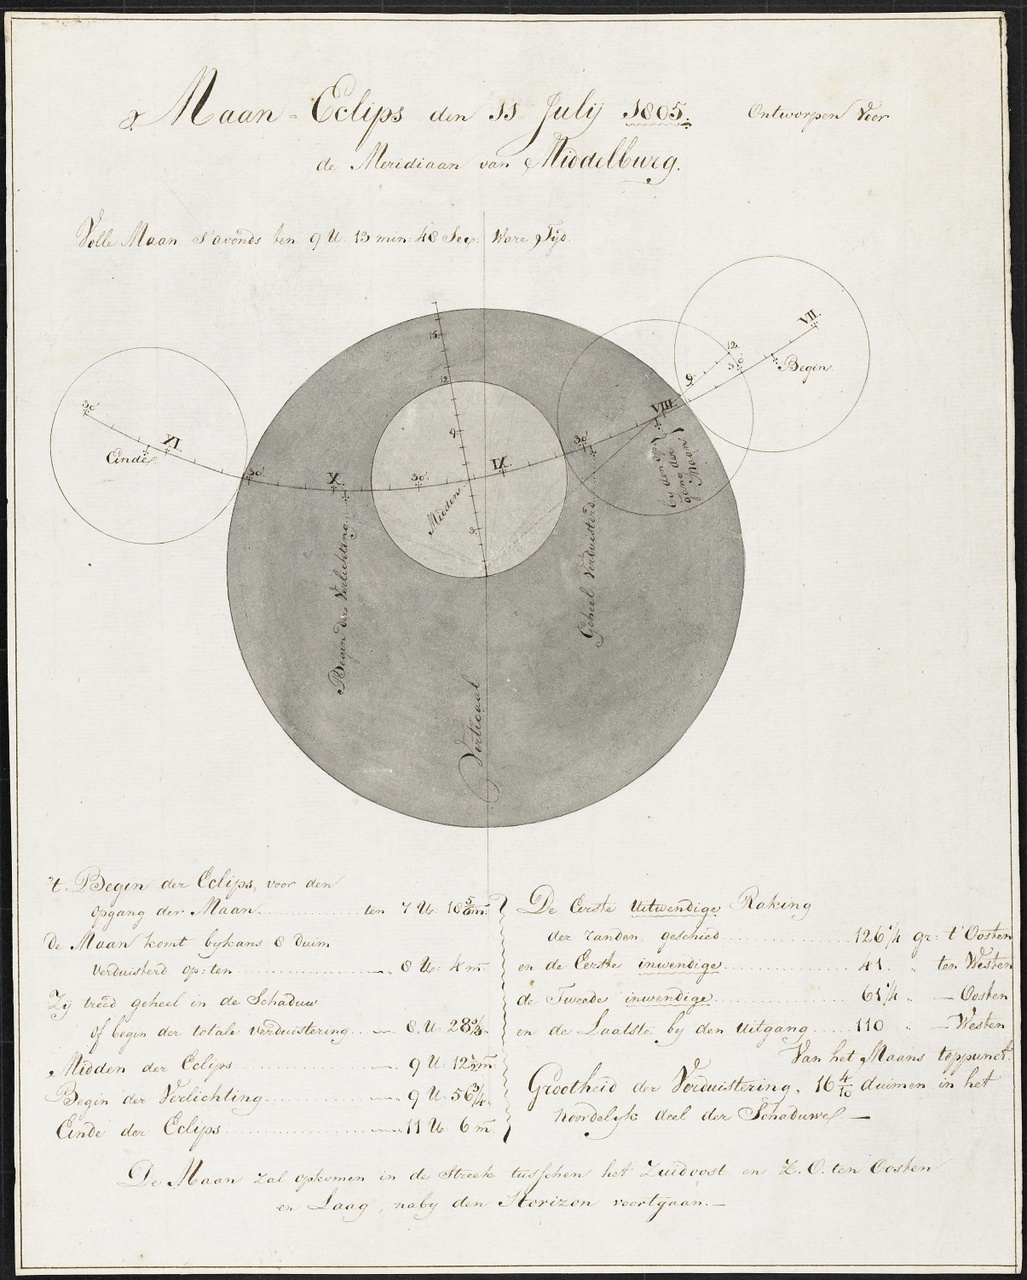 Maan-Eclips den 11 July 1805. Ontworpen Voor
de Meridiaan van Middelburg.
Volle Maan s'avonds ten 9 U: 13 min: 48 Sec: Ware Tijd.
VII.
Begin
12
9
30'
VIII.
by den op
gang der
Maan
30'
Geheel Verduisterd
15
12
9
IX.
Midden
30'
X.
Begin der Verlichting
Verticaal
30'
XI.
Einde
30'
't Begin der Eclips, voor den
opgang der Maan ten 7 U:
de Maan komt bykans 8 duim
verduisterd op: ten 8 U: 4 m
Zij treed geheel in de Schaduw
of begin der totale verduistering 8 U: 28 3/4
Midden der Eclips 9 U: 12 1/2 m
Begin der Verlichting 9 U: 56 3/4
Einde der Eclips 11 U: 6 m
De Eerste Uitwendige Raking
der randen geschied 126 1/4 gr: t' Oosten
en de Eerste inwendige 41 " ten Westen
de Tweede inwendige 61 1/4 " — Oosten
en de Laatste by den Uitgang 110 " — Westen
Van het Maans toppunct
Grootheid der Verduistering, 16 4/10 duimen in het
Noordelyk deel der Schaduwe —
De Maan zal opkomen in de Streek tusschen het Zuidoost en Z.O. ten Oosten
en Laag, naby den Horizon voortgaan. —